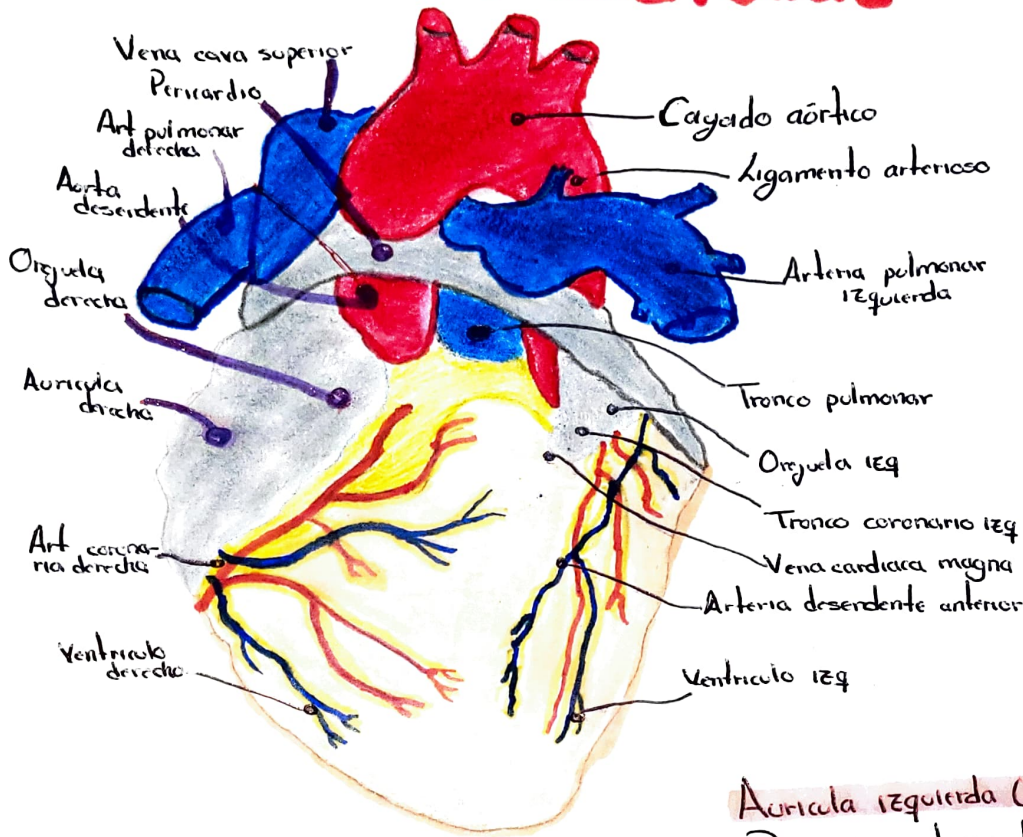 Vena cava superior
Pericardio
Art pulmonar
derecha
Aorta
desendente
Orejuela
derecha
Auricula
derecha
Art corona-
ria derecha
Ventriculo
derecho
Cayado aórtico
Ligamento arterioso
Arteria pulmonar
izquierda
Tronco pulmonar
Orejuela izq
Tronco coronario izq
Vena cardiaca magna
Arteria desendente anterior
Ventriculo izq
Auricula izquierda (